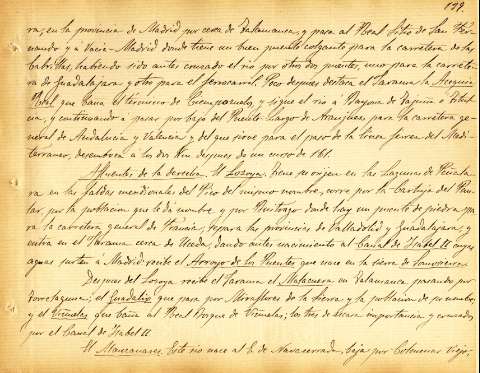 199.
ra, en la provincia de Madrid por cerca de Talamanca, y pasa al Real Sitio de San Fer-
nando y a Vacia-Madrid donde tiene un buen puente colgante para la carretera de las
Cabrillas, habiendo sido antes cruzado el rio por otros dos puentes, uno para la carrete-
ra de Guadalajara y otro para el ferrocarril. Poco despues destaca el Jarama la Acequia
Real que baña el termino de Ciempozuelos, y sigue el rio a Bayona de Tajuña o Titul-
cia, y continuando a pasar por bajo del Puente Largo de Aranjuez para la carretera ge-
neral de Andalucia y Valencia y del que sirve para el paso de la linea ferrea del Medi-
terraneo, desemboca a los dos Km despues de un curso de 161.
Afluentes de la derecha. El Lozoya, tiene su origen en las Lagunas de Peñala-
ra en las faldas meridionales del Pico del mismo nombre, corre por la Cartuja del Pau-
lar, por la poblacion que le dá nombre, y por Buitrago donde hay un puente de piedra pa-
ra la carretera general de Francia; separa las provincias de Valladolid y Guadalajara, y
entra en el Jarama cerca de Uceda, dando antes nacimiento al Canal de Isabel II cuyas
aguas surten a Madrid; recibe el Arroyo de las Puentes que nace en la sierra de Somosierra.
Despues del Lozoya recibe el Jarama el Malacuera en Talamanca pasando por
Torrelaguna; el Guadalix que pasa por Miraflores de la Sierra y la poblacion de su nombre,
y el Viñuelas que baña el Real Bosque de Viñuelas; los tres de escasa importancia y cruzados
por el Canal de Isabel II.
El Manzanares. Este rio nace al E. de Navacerrada, baja por Colmenar Viejo,